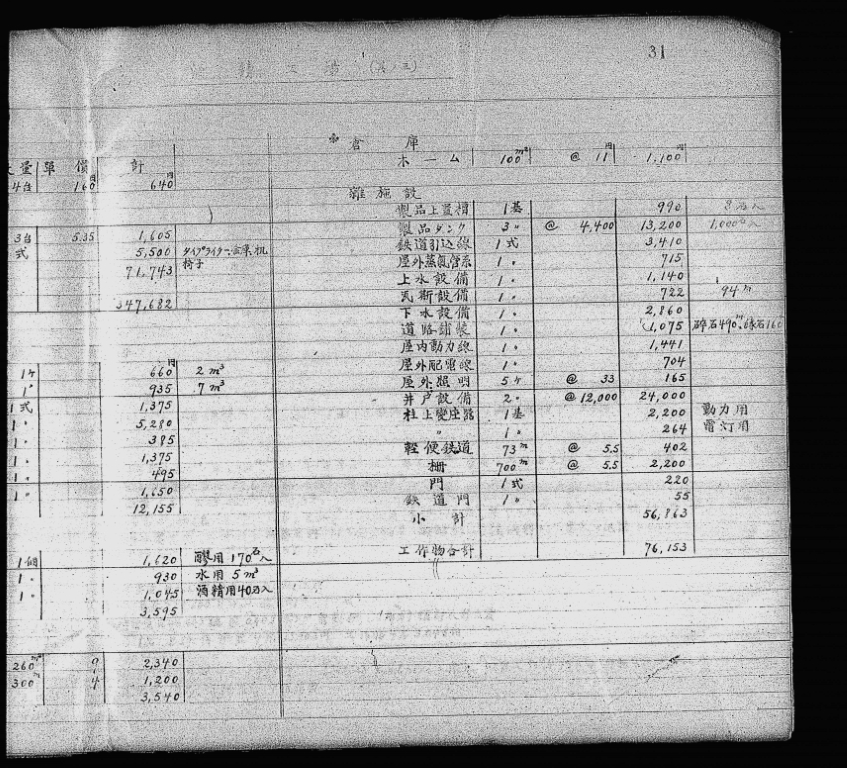 31
酒精工場 (其ノ三)
量 單價 計
4台 160円 640円
3台 535 1,605
式 5,500 タイプライター、金庫、机
椅子
71,743
347,682
1ケ 660円 2 m³
1〃 935 7 m³
1式 1,375
1〃 5,280
1〃 385
1〃 1,375
1〃 495
1〃 1,650
12,155
1個 1,620 醪用 170石入
1〃 930 水用 5 m³
1〃 1,045 酒精用40石入
3,595
260m² 9 2,340
300m 4 1,200
3,540
倉庫
ホーム 100m² @ 11円 1,100円
雜施設
製品上置槽 1基 990
製品タンク 3〃 @ 4,400 13,200
鉄道引込線 1式 3,410
屋外蒸氣管系 1〃 715
上水設備 1〃 1,140
瓦斯設備 1〃 722 94m
下水設備 1〃 2,860
道路舗装 1〃 1,075 碎石490m²
屋内動力線 1〃 1,441
屋外配電線 1〃 704
屋外照明 5ケ @ 33 165
井戸設備 2〃 @ 12,000 24,000
柱上變圧器 1基 2,200 動力用
〃 1〃 264 電灯用
軽便鉄道 73m @ 5.5 402
柵 700m @ 5.5 2,200
門 1式 220
鉄道門 1〃 55
小計 56,863
工作物合計 76,153